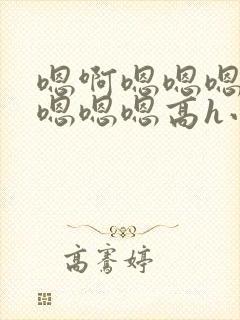 嗯啊嗯嗯嗯
嗯嗯嗯高h、
高骞婷